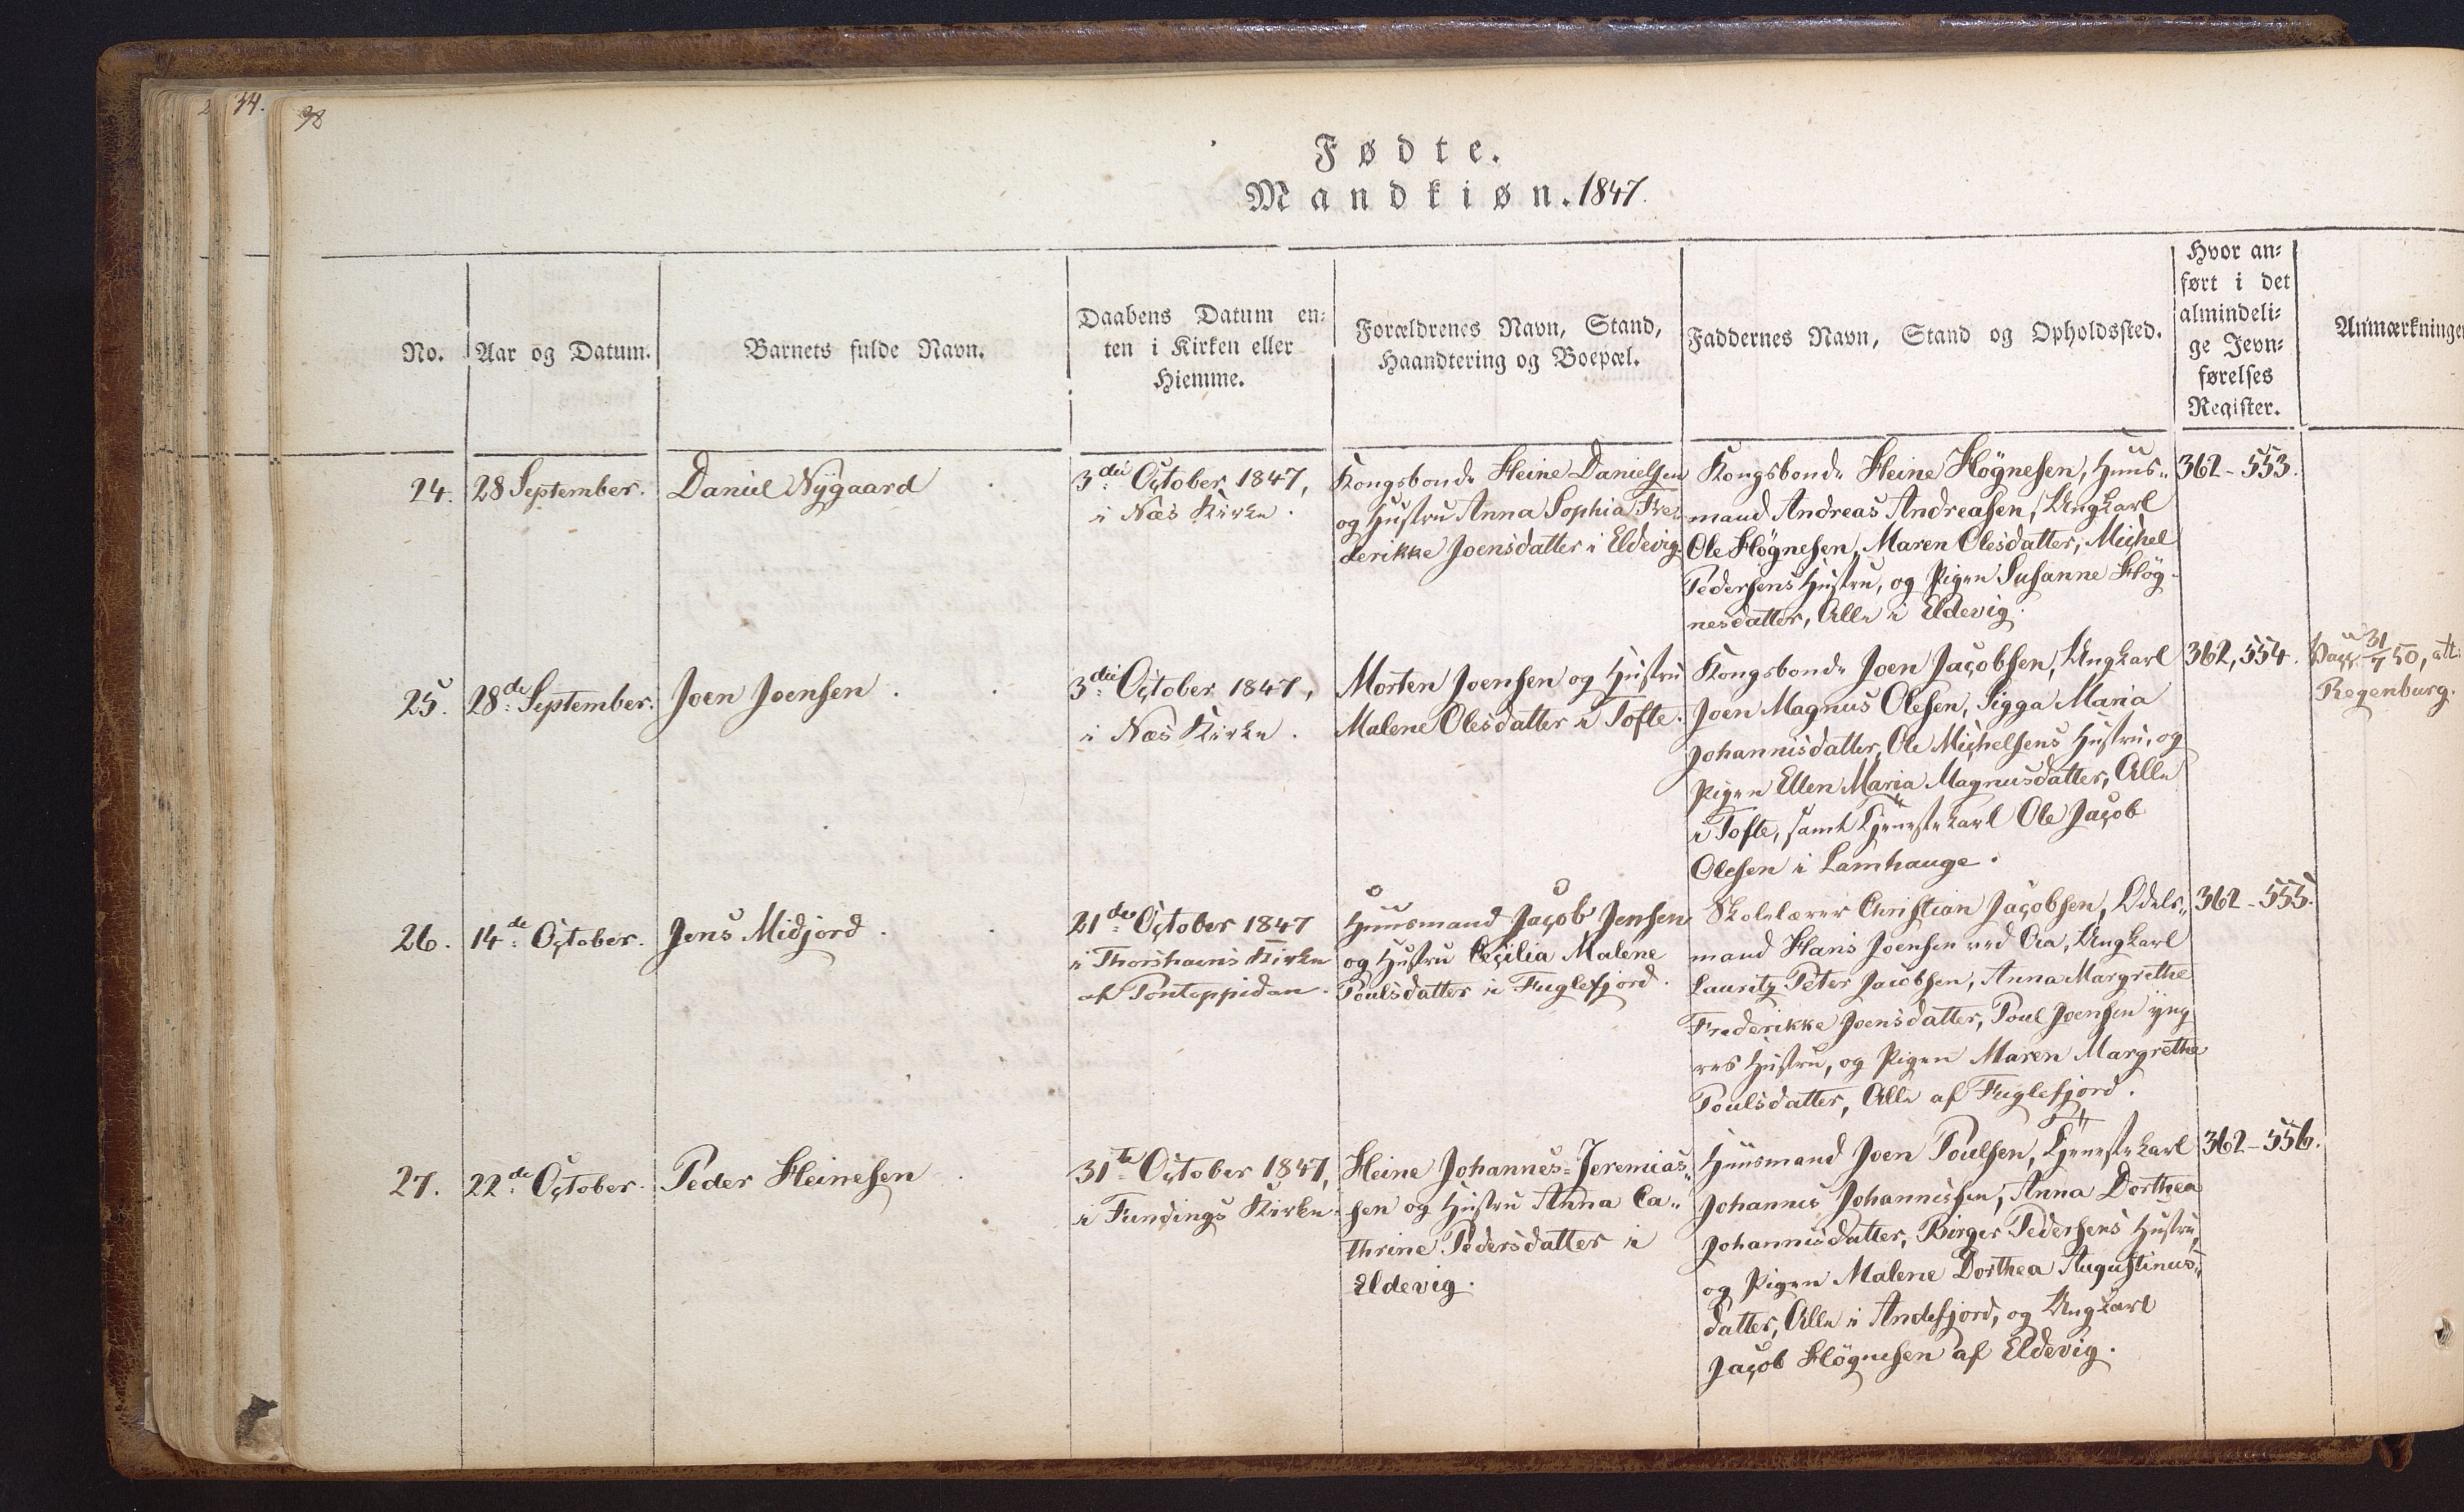 2
34.
38
Fødte.
Mandkiøn. 1847.
No.
Aar og Datum.
Barnets fulde Navn.
Daabens Datum en-
ten i Kirken eller
Hiemme.
Forældrenes Navn, Stand,
Haandtering og Boepæl.
Faddernes Navn, Stand og Opholdssted.
Hvor an-
ført i det
almindeli-
ge Jevn-
førelses
Register.
Anmærkninge
24.
28 September.
Daniel Nÿgaard
3die October 1847,
i Næs Kirke.
Kongsbonde Heine Danielsen
og Hustru Anna Sophia Fre-
derikke Joensdatter i Eldevig.
Kongsbonde Heine Högnesen, Huus-
mand Andreas Andreasen, Ungkarl
Ole Högnesen, Maren Olesdatter, Michel
Pedersens Hustru, og Pigen Susanne Hög-
nesdatter, Alle i Eldevig.
362-553.
25.
28de September.
Joen Joensen.
3die October 1847,
i Næs Kirke.
Morten Joensen og Hustru
Malene Olesdatter i Tofte.
Kongsbonde Joen Jacobsen, Ungkarl
Joen Magnus Olesen, Sigga Maria
Johannisdatter, Ole Michelsens Hustru, og
Pigen Ellen Maria Magnusdatter, Alle
i Tofte, samt Tjenestekarl Ole Jacob
Olesen i Lamhauge.
362, 554.
Vacc: 31/7 50, att:
Regenburg.
26.
14de October.
Jens Midjord.
21de October 1847
i Thorshavns Kirke
af Pontoppidan.
Huusmand Jacob Jensen
og Hustru Cecilia Malene
Poulsdatter i Fuglefjord.
Skolelærer Christian Jacobsen, Odels-
mand Hans Joensen ved Aa, Ungkarl
Lauritz Peter Jacobsen, Anna Margrethe
Frederikke Joensdatter, Poul Joensen ÿng-
res Hustru, og Pigen Maren Margrethe
Poulsdatter, Alle af Fuglefjord.
362-555.
27.
22de October.
Peder Heinesen
31te October 1847,
i Fundings Kirke.
Heine Johannes-Jeremias-
sen og Hustru Anna Ca-
thrine Pedersdatter i
Eldevig.
Huusmand Joen Poulsen, Tjenestekarl
Johannes Johannissen, Anna Dorthea
Johannisdatter, Birger Pedersens Hustru,
og Pigen Malene Dorthea Augustinus-
datter, Alle i Andefjord, og Ungkarl
Jacob Högnesen af Eldevig.
362-556.